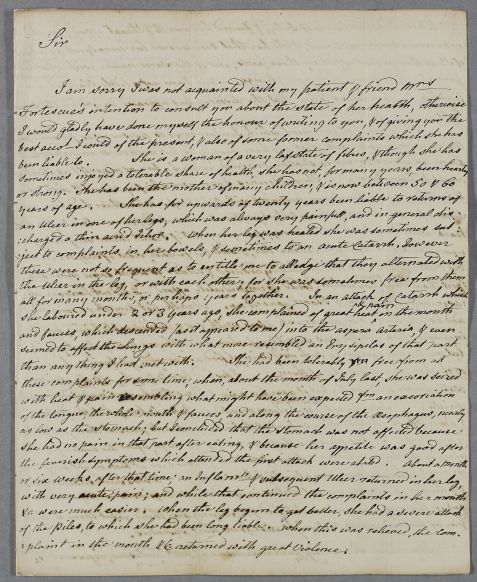 Sir
I am sorry I was not acquainted with my patient & friend Mrs
Fortescue's intention to consult you about the state of her health, otherwise
I would gladly have done myself the honour of writing to you, & of giving you the
best acco.t I could of the present, & also of some former complaints which she has
been liable to. She is a woman of a very lax state of fibres, & though she has
sometimes injoyed a tolerable share of health, she has not, for many years, been hearty
or strong. She has been the mother of many children, & is now between 50 & 60
years of age. She has for upwards of twenty years been liable to returns of
an ulcer in one of her legs, which was always very painfull, and in general dis
:charged a thin acrid Ichor. When her leg was healed she was sometimes sub
:ject to complaints in her bowels, & sometimes to an acute Catarrh. However
these were not so frequent as to entitle me to alledge that they alternated with
the ulcer in the leg, or with each other, for she was sometimes free from them
all for many months, or perhaps years together. In an attack of Catarrh which
she laboured under 2 or 3 years ago, she complained of great heat & pain in the mouth
and fauces, which descended (as it appeared to me) into the aspera arteria, & even
seemed to affect the lungs with what more resembled an Erysipelas of that part
than any thing I had met with. She had been tolerably free from all
these complaints for some time, when, about the month of July last, she was seized
with heat & pain resembling what might have been expected from an excoriation
of the tongue, the whole mouth & fauces and along the course of the Æsophagus, nearly
as low as the stomach; but I concluded that the stomach was not affected because
she had no pain in that part after eating, & because her appetite was good after
the feverish symptoms which attended the first attack were abated. About a month
or six weeks after that time, an Inflam.n & subsequent Ulcer returned in her leg,
with very acute pain; and while that continued the complaints in her mouth
&c were much easier. When the leg began to get better, she had a severe attack
of the piles, to which she had been long liable. When this was relieved, the com
:plaint in the mouth &c returned with great violence.